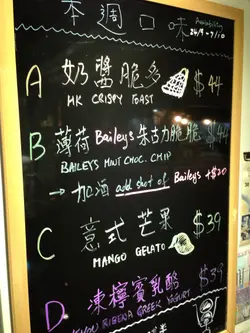 本週口味
Availability
24/9 - 7/10
A 奶醬脆多 $44
HK CRISPY TOAST
B 薄荷 Baileys 朱古力脆脆 $44
BAILEYS MINT CHOC. CHIP
→ 加酒 add shot of Baileys +$20
C 意式芒果 $39
MANGO GELATO
D 凍檸賓乳酪 $39
RIBENA GREEK YOGURT